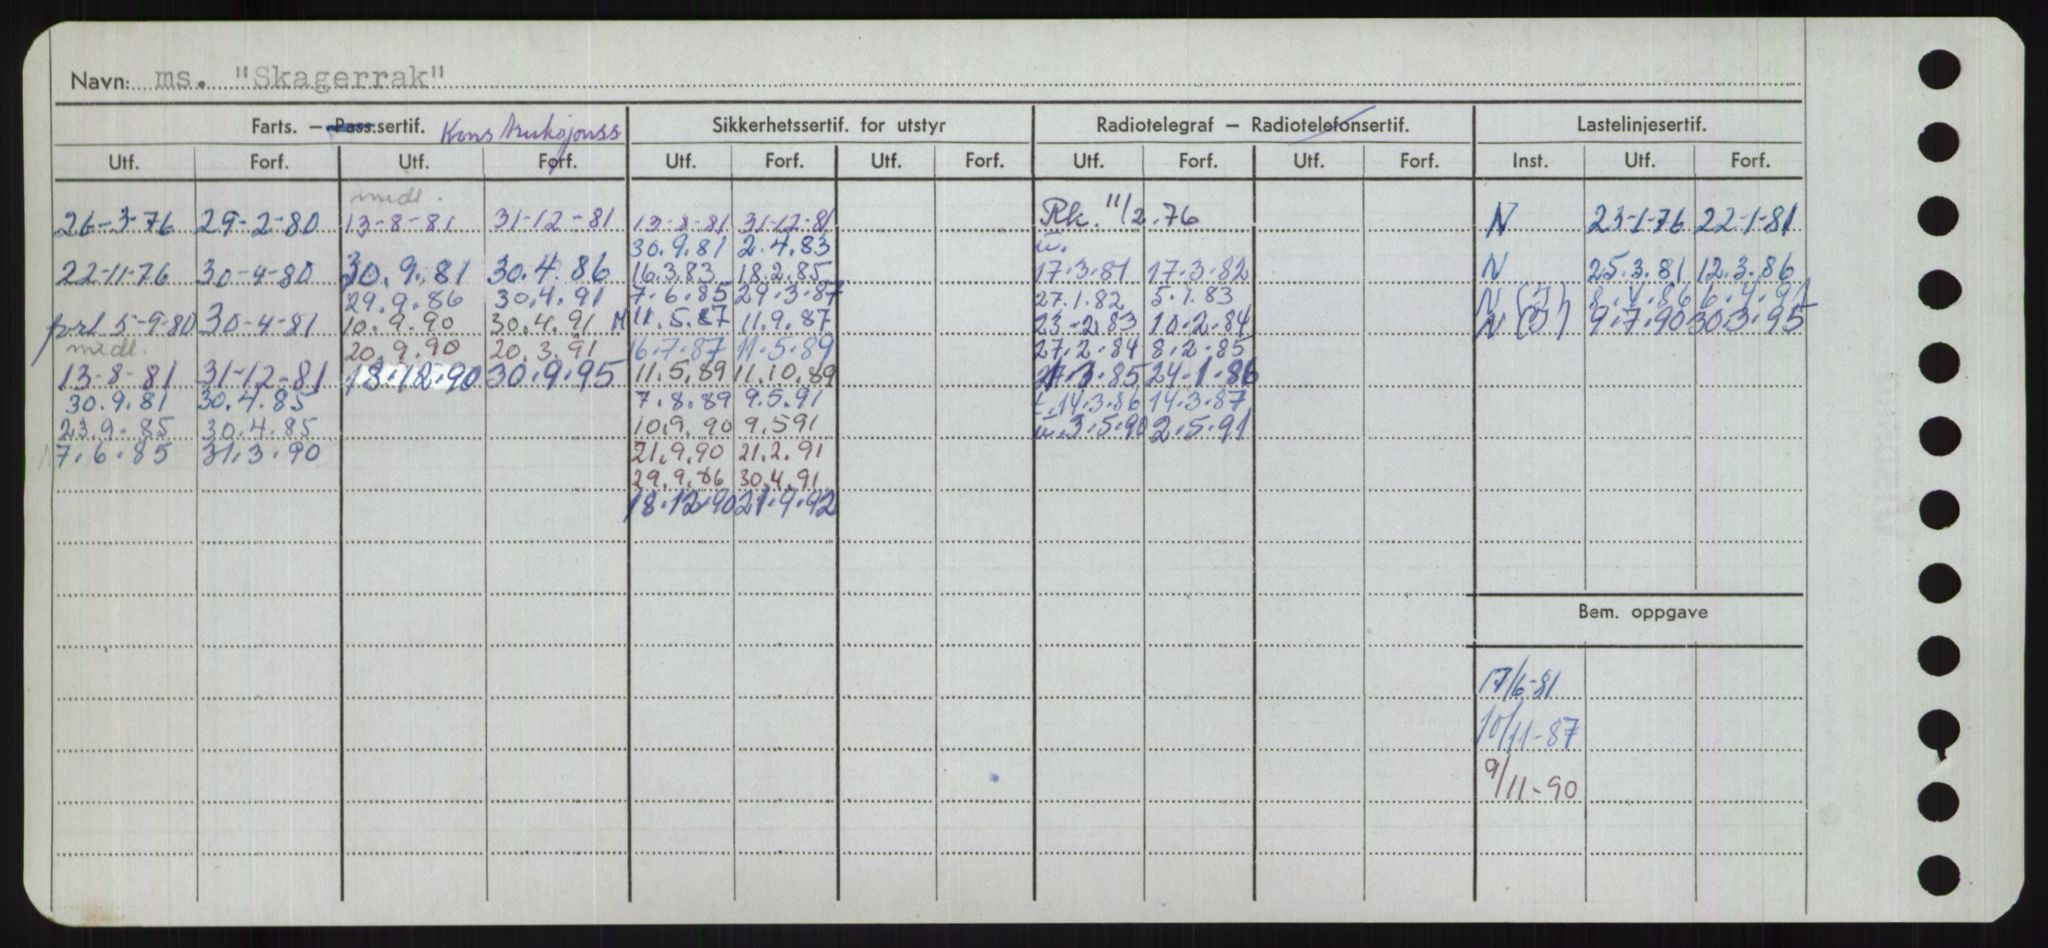 Navn: ms. "Skagerrak"
Farts. – Pass.sertif. Sikkerhetssertif. for utstyr Radiotelegraf – Radiotelefonsertif. Lastelinjesertif.
Utf. Forf. Utf. Forf. Utf. Forf. Utf. Forf. Utf. Forf. Utf. Forf. Inst. Utf. Forf.
midl.
26-3-76 29-2-80 13-8-81 31-12-81 13-8-81 31-12-81 Rk. 11/2.76 N 23-1-76 22-1-81
30.9.81 2.4.83 u.
22-11-76 30-4-80 30.9.81 30.4.86 16.3.83 18.2.85 17.3.81 17.3.82 N 25.3.81 12.3.86
29.9.86 30.4.91 7.6.85 29.3.87 27.1.82 5.1.83 N
forl 5-9-80 30-4-81 10.9.90 30.4.91 M 11.5.87 11.9.87 23-2.83 10.2.84 N 9.7.90 30.3.95
midl. 20.9.90 20.3.91 16.7.87 11.5.89 27.2.84 8.2.85
13-8-81 31-12-81 18.12.90 30.9.95 11.5.89 11.10.89 3.85 24.1.86
30.9.81 30.4.85 7.8.89 9.5.91 t. 14.3.86 14.3.87
23.9.85 30.4.85 10.9.90 9.591 u. 3.5.90 2.5.91
7.6.85 31.3.90 21.9.90 21.2.91
29.9.86 30.4.91
18.12.90 21.9.92
Bem. oppgave
17/6-81
10/11-87
9/11-90